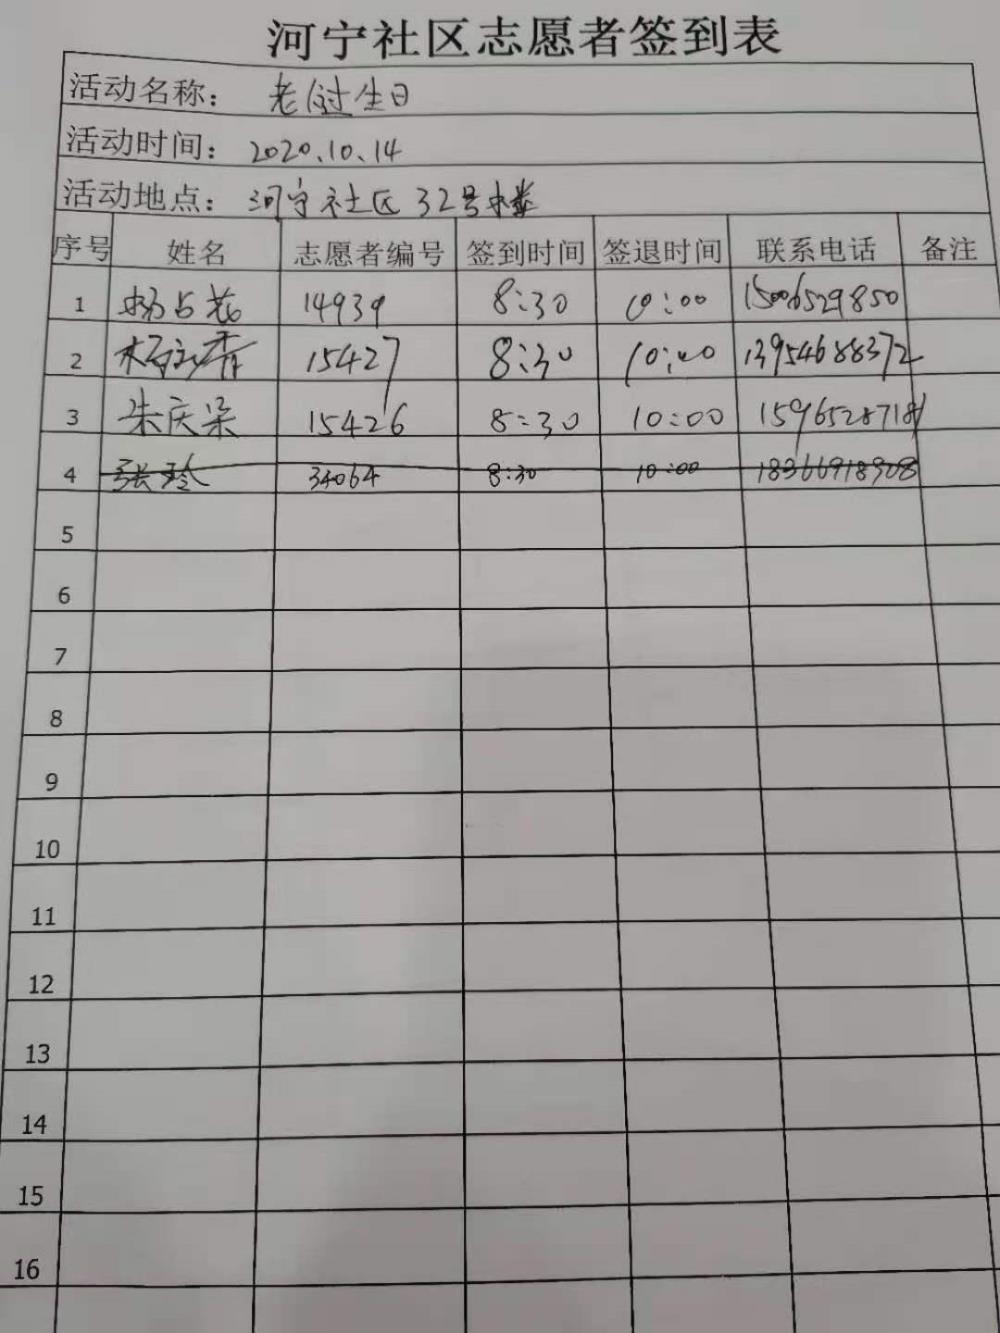 河宁社区志愿者签到表
活动名称: 老 过生日
活动时间: 2020.10.14
活动地点: 河宁社区32号楼
序号 姓名 志愿者编号 签到时间 签退时间 联系电话 备注
1 杨占花 14939 8:30 10:00 15006529850
2 15427 8:30 10:00 13954688372
3 朱庆朵 15426 8:30 10:00 15965287181
4 张玲 34064 8:30 10:00 18366918908
5
6
7
8
9
10
11
12
13
14
15
16